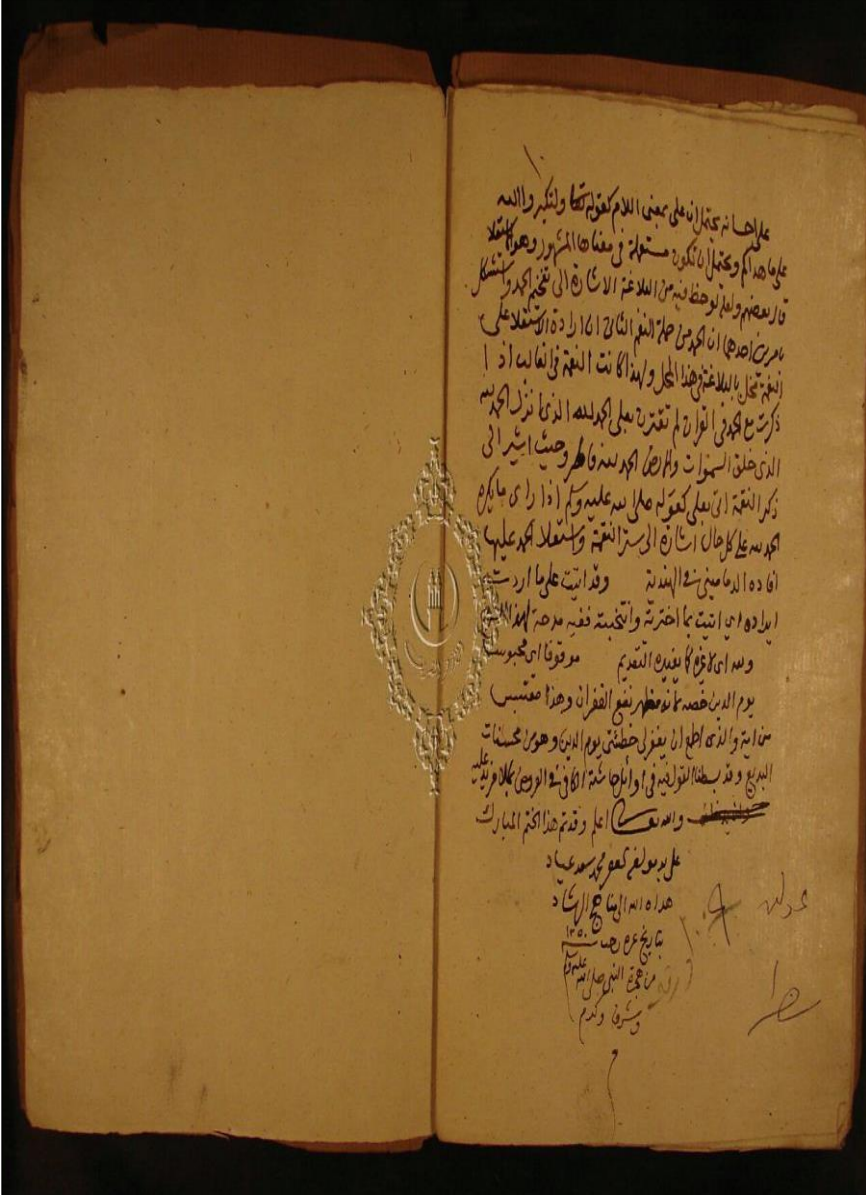 ١٠
على احسانه يحتمل ان على بمعنى اللام كقوله تعالى ولتكبروا الله
على ما هداكم ويحتمل ان تكون مستعملة في معناها المشهور وهو الاستعلا
قال بعضهم ولعله لوحظ فيه من البلاغة الاشارة الى تفخيم الحمد واستشكل
بامرين احدهما ان الحمد من جملة النعم الثاني ان ارادة الاستعلا على
النعمة تخل بالبلاغة في هذا المحل ولهذا كانت النعمة في الغالب اذا
ذكرت مع الحمد في القران لم تقترن بعلى الحمد لله الذي انزل الحمد لله
الذي خلق السموات والارض الحمد لله فاطر وحيث اشير الى
ذكر النقمة اتى بعلى كقوله صلى الله عليه وسلم اذا راى ما يكره
الحمد لله على كل حال اشارة الى ستر النقمة واستعلا الحمد عليها
افاده الدماميني في الهندية وقد اتيت على ما اردت
ايراده اي اتيت بما اخترته وانتخبته ففيه مدحة لهذا
ولله اي لا غيره كما يفيده التقديم موقوفا اي محبوسا
يوم الدين خصه لانه مظهر نفع الغفران وهذا مقتبس
من اية والذي اطمع ان يغفر لي خطيئتي يوم الدين وهو من محسنات
البديع وقد بسطنا القول فيه في اوائل حاشية الكافي في العروض بما لا مزيد عليه
والله تعالى اعلم وقد تم هذا الختم المبارك
على يد مولفه محمد سعد عياد
هداه الله الى مناهج الرشاد
بتاريخ غرة رجب سنة ١٢٥٠
من هجرة النبي صلى الله عليه وسلم
وشرف وكرم